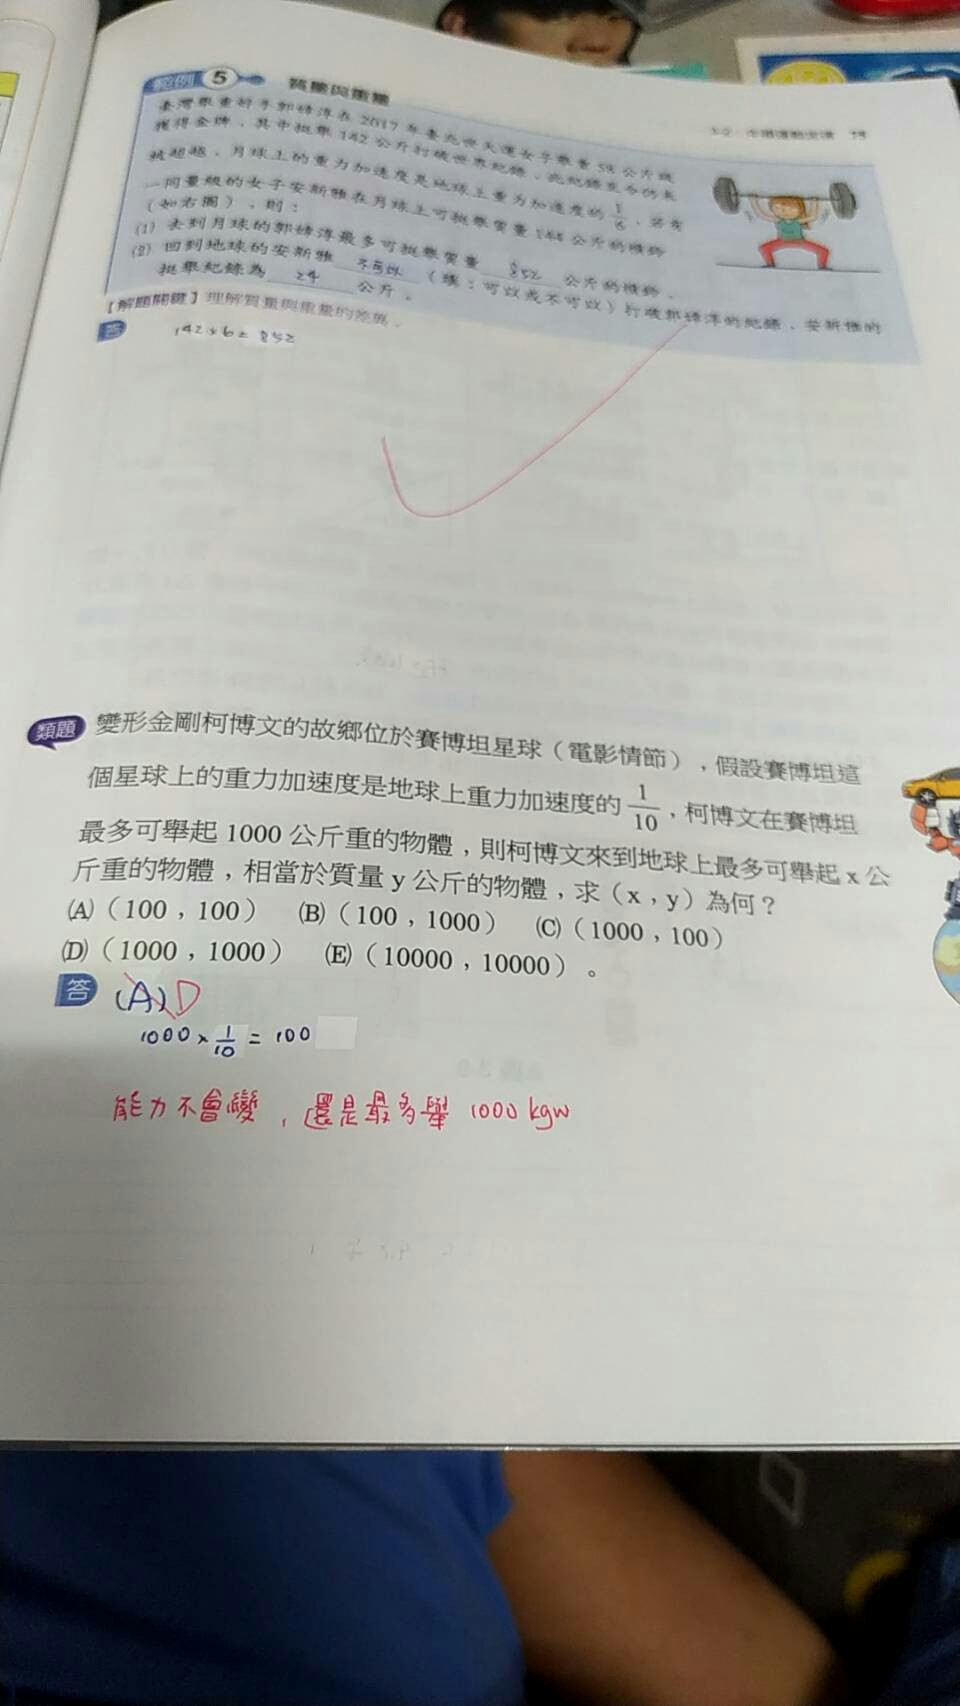 範例 5 質量與重量
3-2 牛頓運動定律 79
臺灣舉重好手郭婞淳在 2017 年臺北世大運女子舉重 58 公斤級
獲得金牌，其中挺舉 142 公斤打破世界紀錄，此紀錄至今仍未
被超越。月球上的重力加速度是地球上重力加速度的 1/6，若有
一同量級的女子安新雅在月球上可挺舉質量 144 公斤的槓鈴
（如右圖），則：
(1) 去到月球的郭婞淳最多可挺舉質量 852 公斤的槓鈴。
(2) 回到地球的安新雅 不可以 （填：可以或不可以）打破郭婞淳的紀錄，安新雅的
挺舉紀錄為 24 公斤。
【解題關鍵】理解質量與重量的差異。
答 142 × 6 = 852
類題 變形金剛柯博文的故鄉位於賽博坦星球（電影情節），假設賽博坦這
個星球上的重力加速度是地球上重力加速度的 1/10，柯博文在賽博坦
最多可舉起 1000 公斤重的物體，則柯博文來到地球上最多可舉起 x 公
斤重的物體，相當於質量 y 公斤的物體，求（x，y）為何？
(A)（100，100） (B)（100，1000） (C)（1000，100）
(D)（1000，1000） (E)（10000，10000）。
答 (A) D
1000 × 1/10 = 100
能力不會變，還是最多舉 1000 kgw